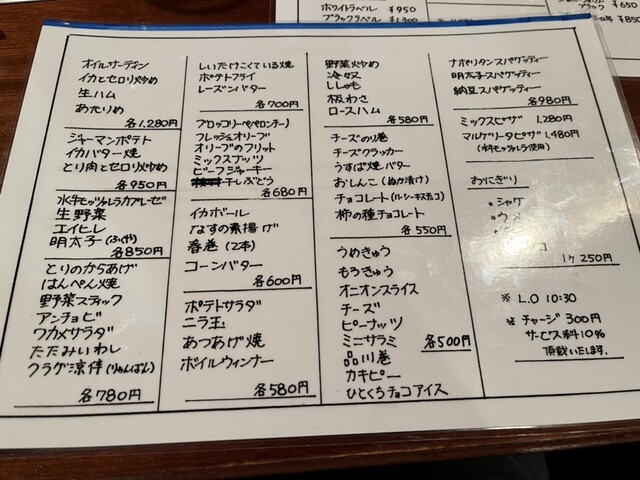 ホワイトラベル ¥950
ブラックラベル ¥1,300
ブラック ¥650
¥850
オイルサーディン
イカとセロリ炒め
生ハム
あたりめ
各1,280円
ジャーマンポテト
イカバター焼
とり肉とセロリ炒め
各950円
水牛モッツァレラカプレーゼ
生野菜
エイヒレ
明太子(ふくや)
各850円
とりのからあげ
はんぺん焼
野菜スティック
アンチョビ
ワカメサラダ
たたみいわし
クラゲ涼伴(りゃんばん)
各780円
しいたけこくている焼
ポテトフライ
レーズンバター
各700円
ブロッコリーペペロンチーノ
フレッシュオリーブ
オリーブのフリット
ミックスナッツ
ビーフジャーキー
干しぶどう
各680円
イカボール
なすの素揚げ
春巻(2本)
コーンバター
各600円
ポテトサラダ
ニラ玉
あつあげ焼
ボイルウィンナー
各580円
野菜炒め
冷奴
ししゃも
板わさ
ロースハム
各580円
チーズのり巻
チーズクラッカー
うすば焼バター
おしんこ(ぬか漬け)
チョコレート(ルーシーキスチョコ)
柿の種チョコレート
各550円
うめきゅう
もろきゅう
オニオンスライス
チーズ
ピーナッツ
ミニサラミ
品川巻
カキピー
ひとくちチョコアイス
各500円
ナポリタンスパゲッティー
明太子スパゲッティー
納豆スパゲッティー
各980円
ミックスピザ 1,280円
マルゲリータピザ 1,480円
(水牛モッツァレラ使用)
おにぎり
・シャケ
・ウメ
コ
1ケ 250円
※ L.O 10:30
※ チャージ 300円
サービス料10%
頂戴いたします.